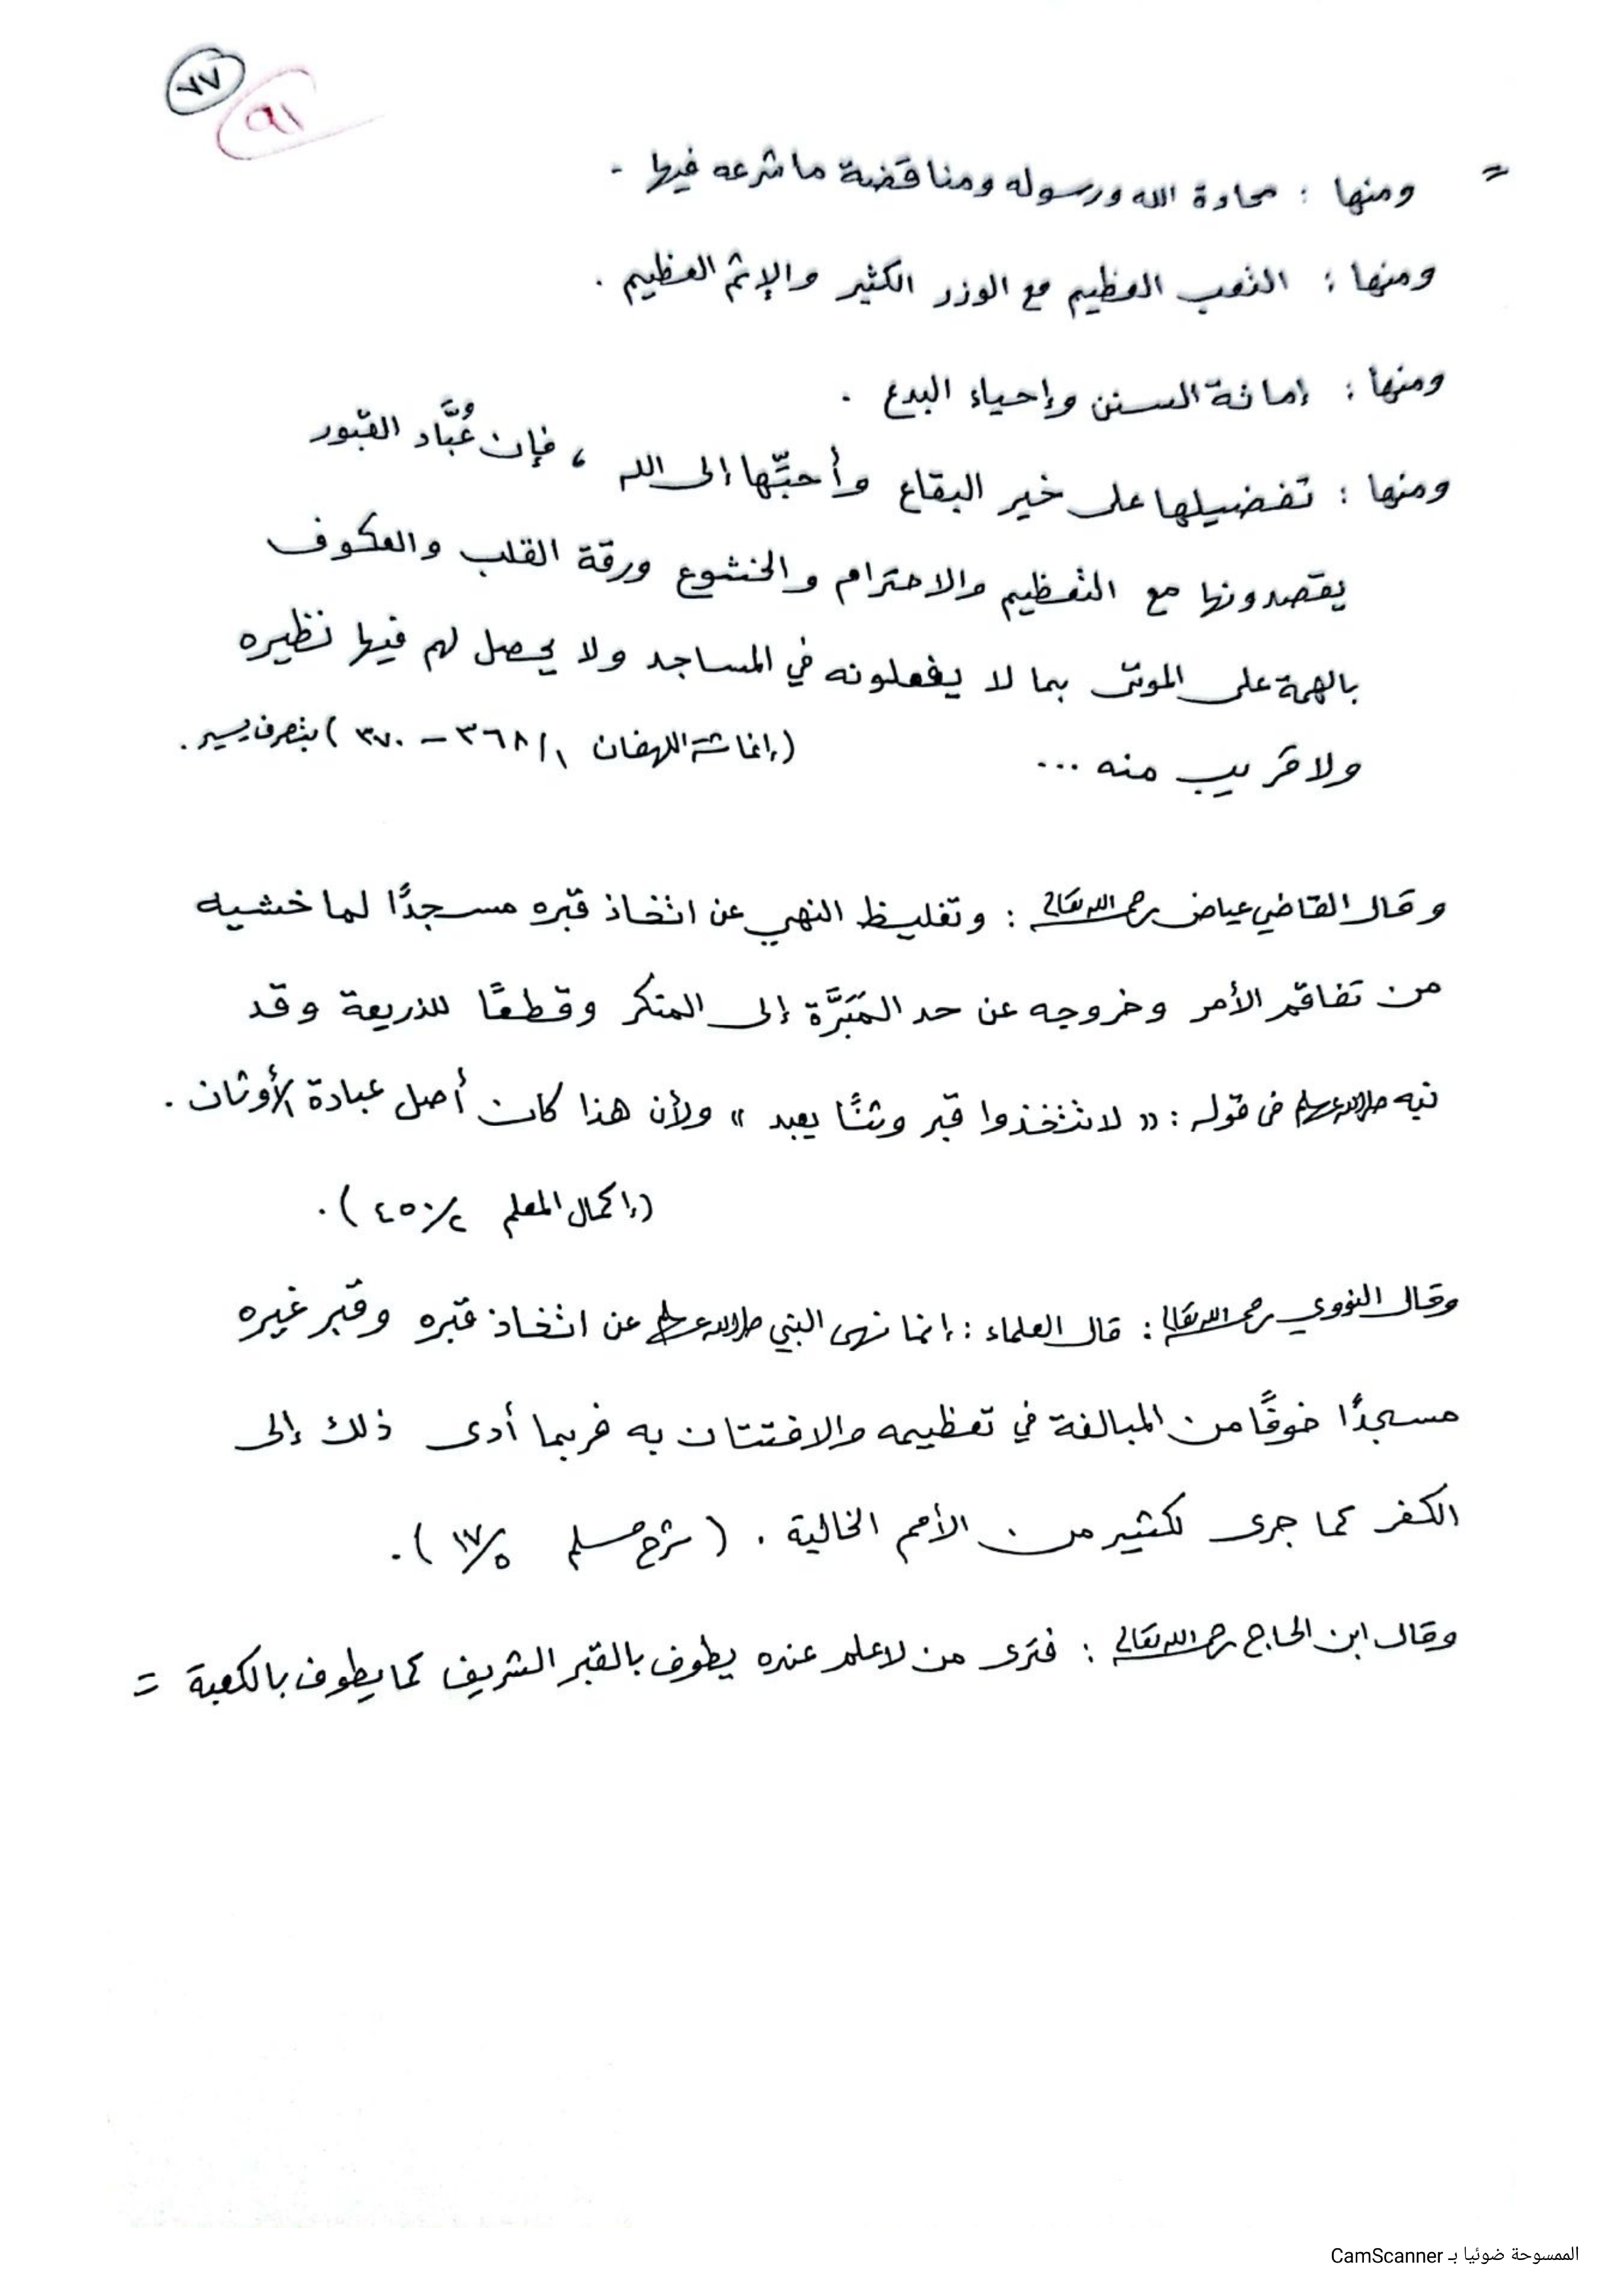 ٧٧
٩١
= ومنها : محادة الله ورسوله ومناقضة ما شرعه فيها .
ومنها : التعب العظيم مع الوزر الكثير والإثم العظيم .
ومنها : إماتة السنن وإحياء البدع .
ومنها : تفضيلها على خير البقاع وأحبِّها إلى الله ، فإن عُبَّاد القبور
يقصدونها مع التعظيم والاحترام والخشوع ورقة القلب والعكوف
بالهمة على الموتى بما لا يفعلونه في المساجد ولا يحصل لهم فيها نظيره
ولا قريب منه ... (إغاثة اللهفان ١/ ٣٦٨ – ٣٧٠) بتصرف يسير .
وقال القاضي عياض رحمه الله تعالى : وتغليظ النهي عن اتخاذ قبره مسجدًا لما خشيه
من تفاقم الأمر وخروجه عن حد المَبَرَّة إلى المنكر وقطعًا للذريعة وقد
نبه صلى الله عليه وسلم في قوله : « لا تتخذوا قبر وثنًا يعبد » ولأن هذا كان أصل عبادة الأوثان .
(إكمال المعلم ٢/ ٤٥٠) .
وقال النووي رحمه الله تعالى : قال العلماء : إنما نهى النبي صلى الله عليه وسلم عن اتخاذ قبره وقبر غيره
مسجدًا خوفًا من المبالغة في تعظيمه والافتتان به فربما أدى ذلك إلى
الكفر كما جرى لكثير من الأمم الخالية . ( شرح مسلم ٥/ ١٧ ) .
وقال ابن الحاج رحمه الله تعالى : فترى من لا علم عنده يطوف بالقبر الشريف كما يطوف بالكعبة =
الممسوحة ضوئيا بـ CamScanner